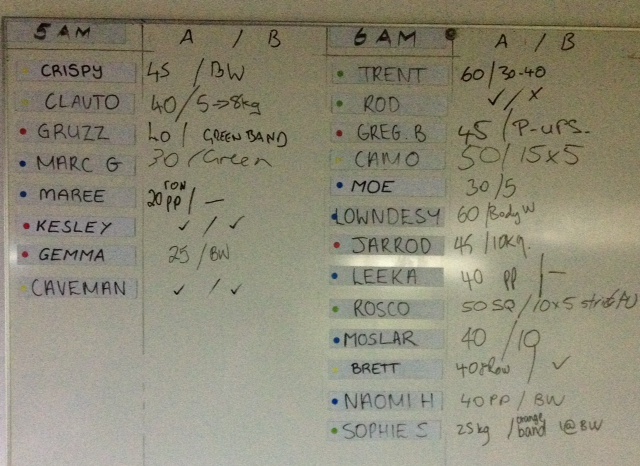 5 AM A / B
CRISPY 45 / BW
CLAUTO 40/5→8kg
GRUZZ 40 / GREEN BAND
MARC G 30 / Green
MAREE 20 PP / —
KESLEY ✓ / ✓
GEMMA 25 / BW
CAVEMAN ✓ / ✓
6 AM A / B
TRENT 60/30-40
ROD ✓ / x
GREG.B 45 / P-UPS.
CAMO 50/ 15x5
MOE 30/5
LOWNDESY 60/Body W
JARROD 45 /10kg.
LEEKA 40 PP / —
ROSCO 50 SQ / 10x5
MOSLAR 40 / 10
BRETT 40 / ✓
NAOMI H 40 PP / BW
SOPHIE S 25kg / orange band 1@BW